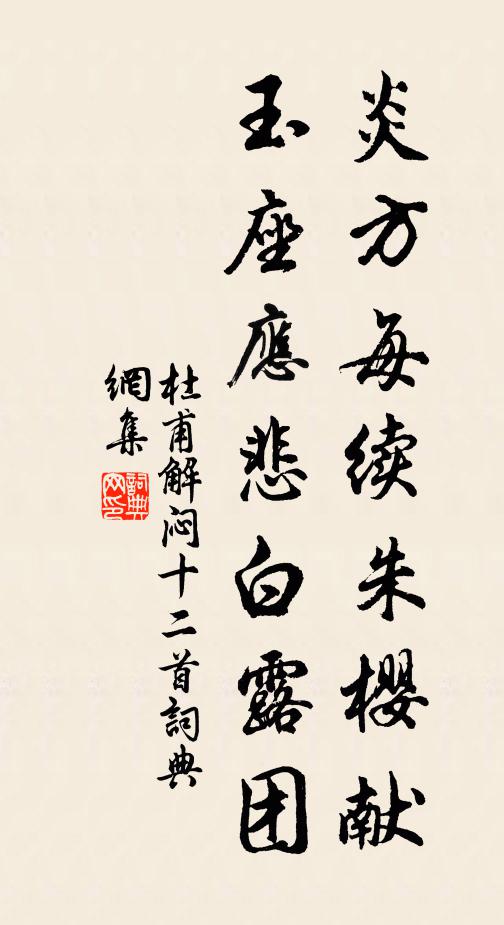 炎方每续朱樱献
玉座應悲白露团
杜甫解闷十二首詞典
網集
詞典
网印